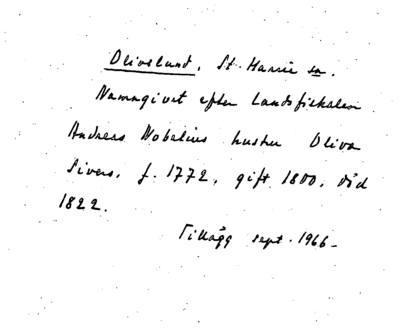 Olivelund, St. Harrie sn.
Namngivet efter Landsfiskalen
Andreas Nobelius hustru Oliva
Sivers, f. 1772, gift 1800, död
1822.
Tillägg sept. 1966-